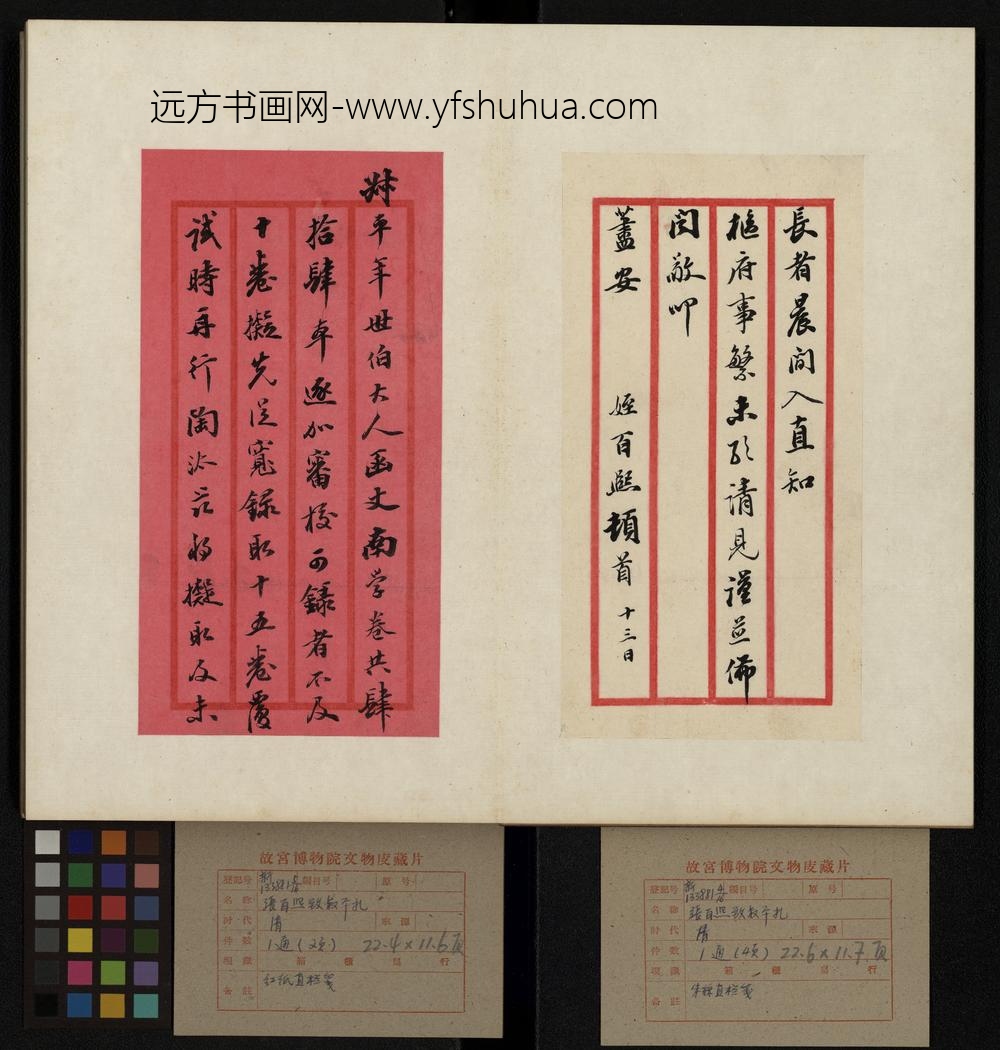 远方书画网-www.yfshuhua.com
長者晨間入直知
樞府事繁未敢請見謹並佈
聞敬叩
藎安 姪百熙頓首 十三日
年世伯大人函丈南学卷共肆
拾肆本逐加審校可錄者不及
十卷擬先從寬錄取十五卷覆
試時再行陶汰茲將擬取及未
故宮博物院文物庋藏片
登記号 新133881 編目号 原号
名称 張百熙致叔平札
时代 清 來源
件数 1通(2頁) 22.4×11.6頁
現藏 箱 櫃 層 行
备註 红纸直栏箋
故宮博物院文物庋藏片
登記号 新133881 編目号 原号
名称 張百熙致叔平札
时代 清 來源
件数 1通(4頁) 22.6×11.7頁
現藏 箱 櫃 層 行
备註 朱絲直栏箋